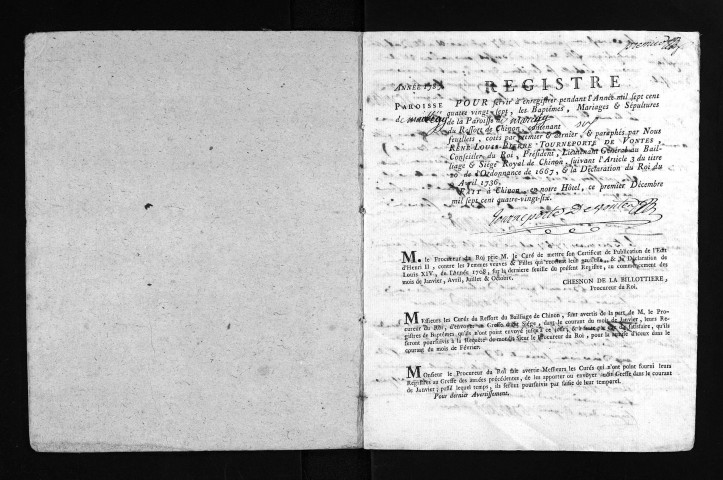 premier
ANNÉE 1787.
REGISTRE
PAROISSE
de
POUR servir à enregistrer pendant l'Année mil sept cent
quatre vingt-sept, les Baptêmes, Mariages & Sépultures
de la Paroisse de
du Ressort de Chinon, contenant six
feuillets, cotés par premier & dernier, & paraphés par Nous
RENÉ-LOUIS-PIERRE TOURNEPORTE DE VONTES,
Conseiller du Roi, Président, Lieutenant Général au Bail-
liage & Siége Royal de Chinon, suivant l'Article 3 du titre
20 de l'Ordonnance de 1667, & la Déclaration du Roi du
Avril 1736.
FAIT à Chinon, en notre Hôtel, ce premier Décembre
mil sept cent quatre-vingt-six.
Tourneporte De Vontes
M. le Procureur du Roi prie M. le Curé de mettre son Certificat de Publication de l'Edit
d'Henri II, contre les Femmes veuves & Filles qui recelent leur grossesse, & la Déclaration de
Louis XIV, de l'Année 1708, sur la derniere feuille du présent Registre, au commencement des
mois de Janvier, Avril, Juillet & Octobre.
CHESNON DE LA BILLOTTIERE,
Procureur du Roi.
Messieurs les Curés du Ressort du Bailliage de Chinon, sont avertis de la part de M. le Pro-
cureur du Roi, d'envoyer au Greffe dudit Siége, dans le courant du mois de Janvier, leurs Re-
gistres de Baptêmes, qu'ils n'ont point envoyé jusqu'à ce jour, & à faute par eux d'y satisfaire, qu'ils
seront poursuivis à la Requête de mondit Sieur le Procureur du Roi, pour la remise d'iceux dans le
courant du mois de Février.
Monsieur le Procureur du Roi fait avertir Messieurs les Curés qui n'ont point fourni leurs
Registres au Greffe des années précédentes, de les apporter ou envoyer audit Greffe dans le courant
de Janvier; passé lequel temps, ils seront poursuivis par saisie de leur temporel.
Pour dernier Avertissement.